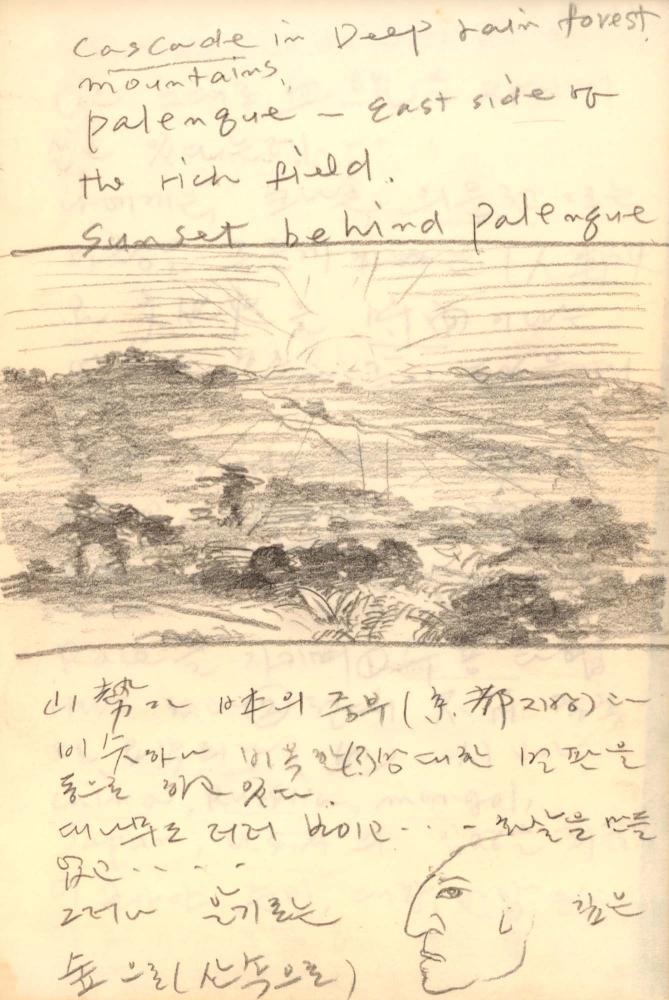 Cascade in Deep rain forest
mountains,
palenque - east side of
the rich field.
Sunset behind palenque
山勢가 日本의 중부(京都지방)과
비슷하나 비옥한(?)방대한 벌판을
동으로 하고 있다.
대나무도 더러 보이고... 화살을 만들
었고....
그러나 깊은
숲으로(산속으로)